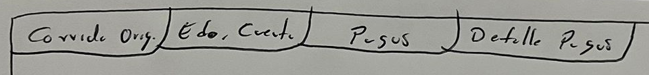 Corrida Orig. Edo. Cuenta Pagos Detalle Pagos